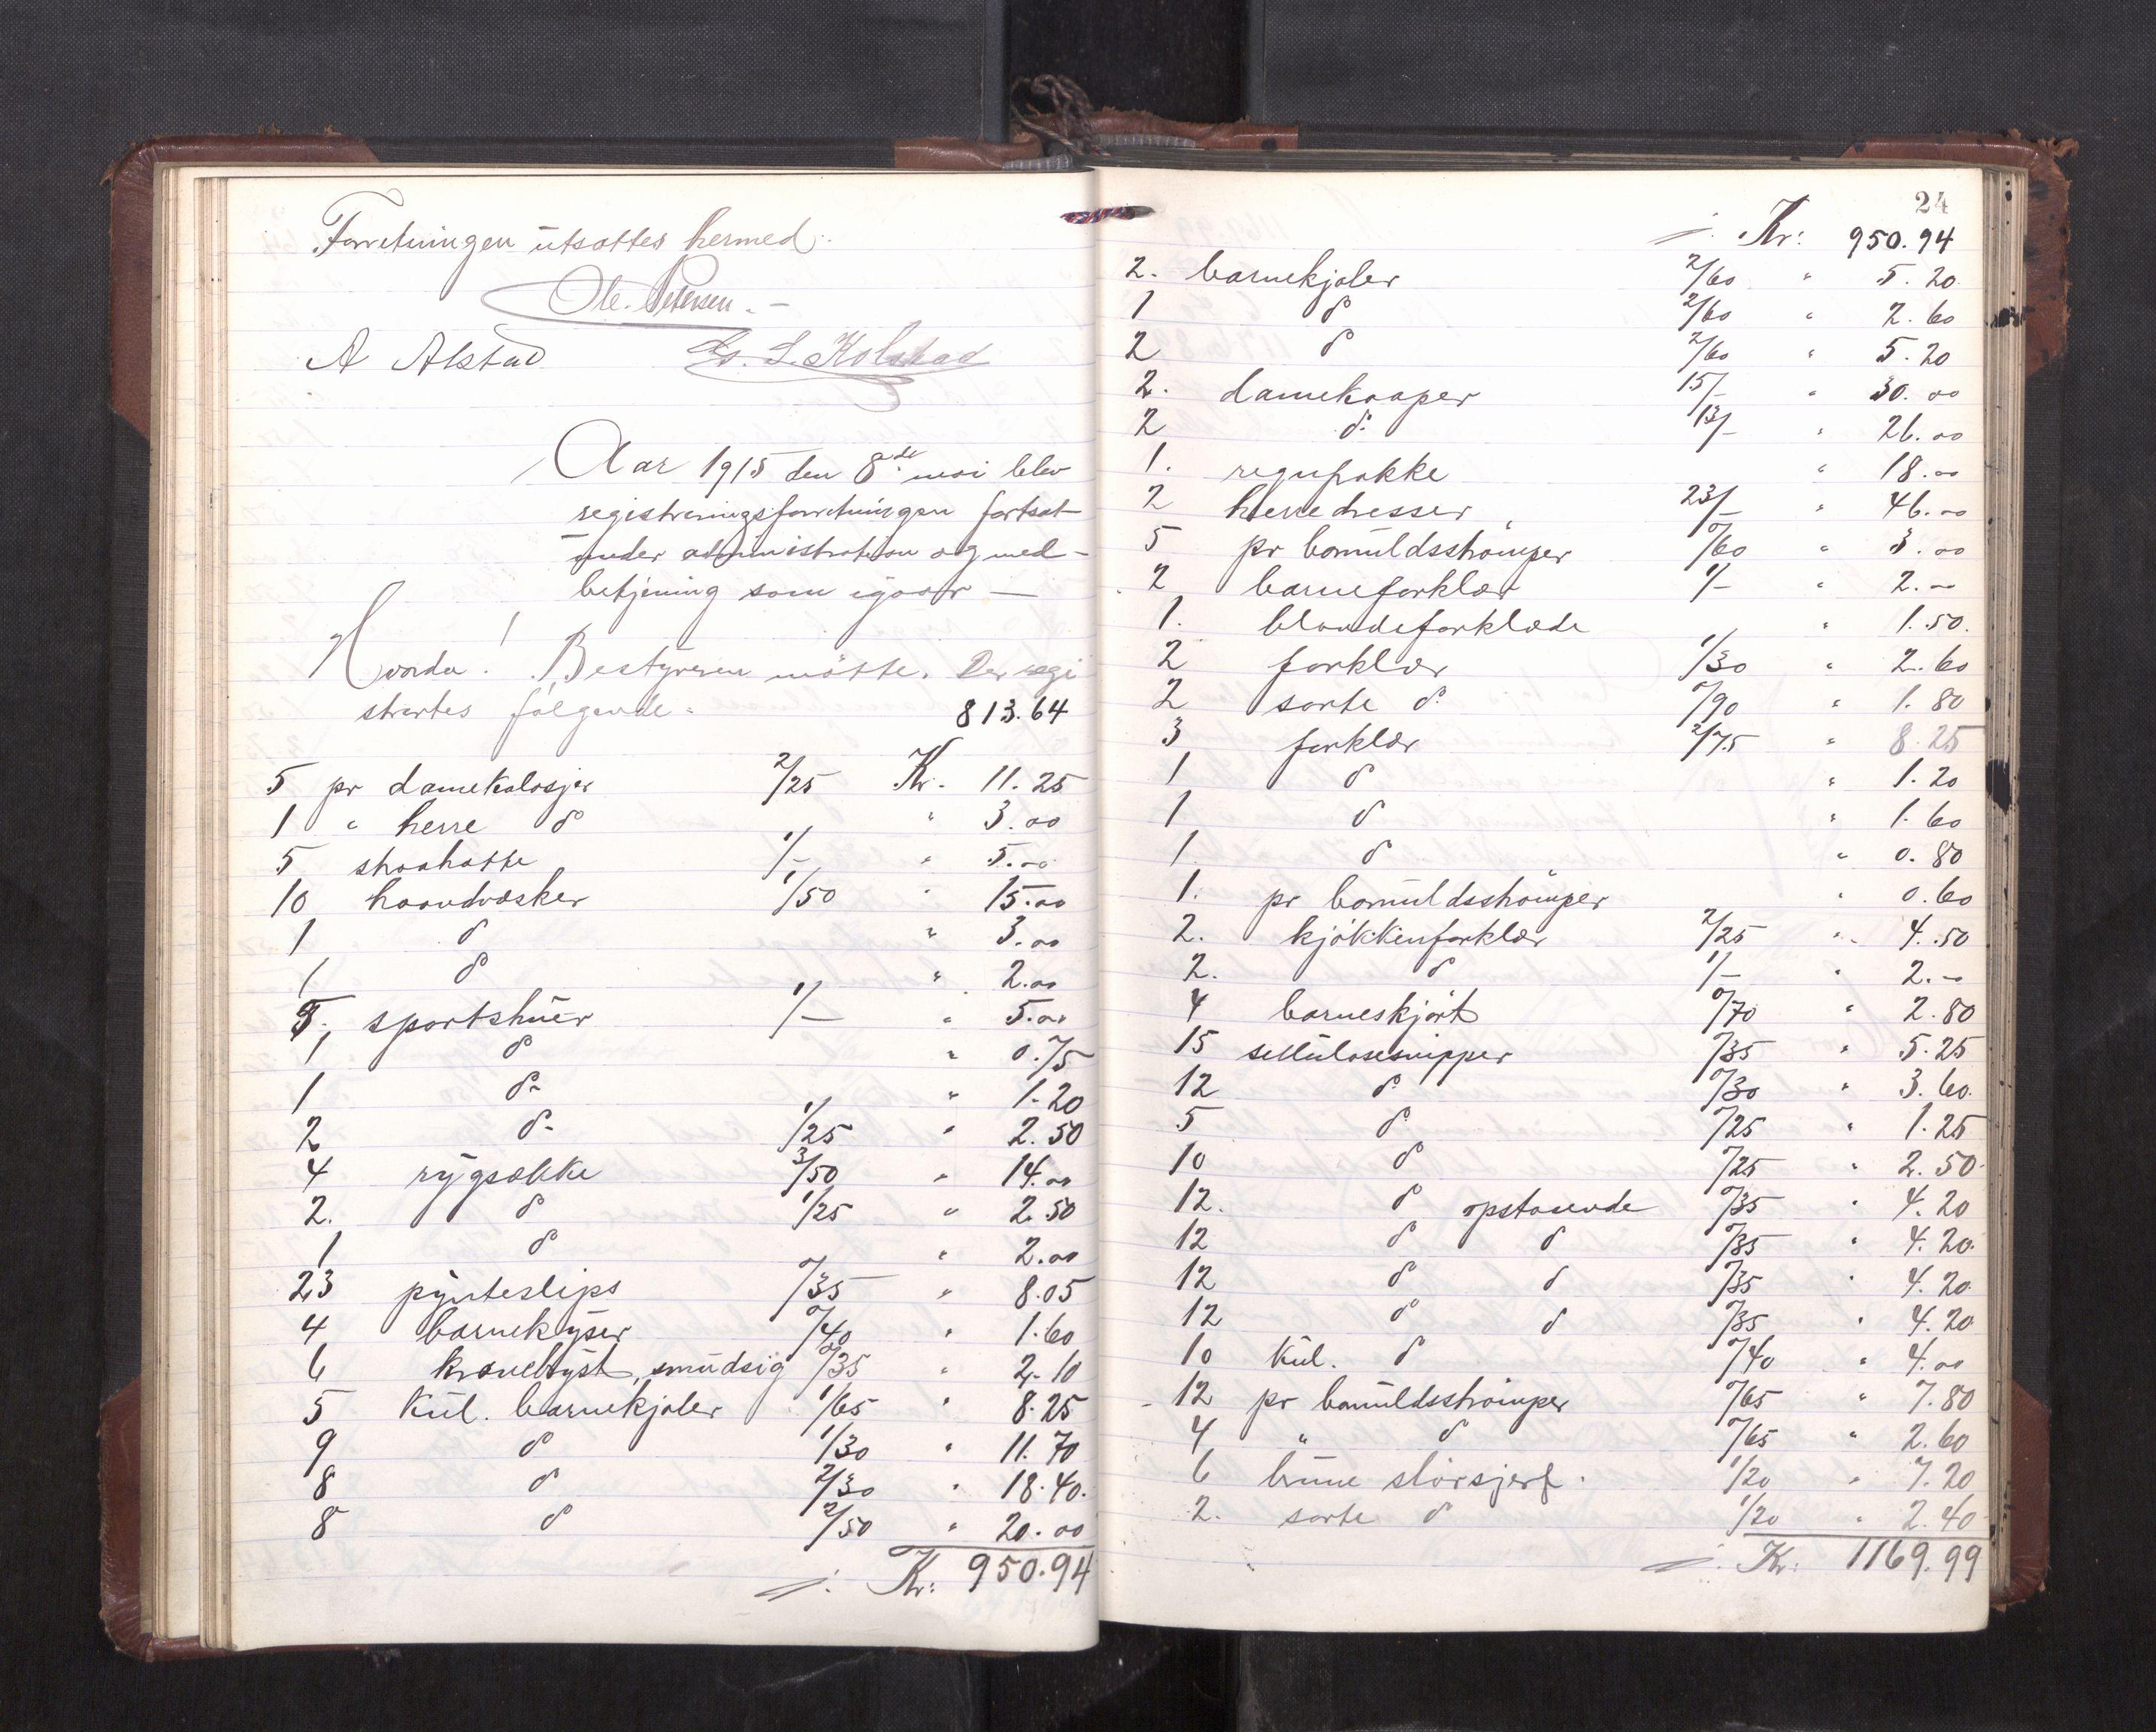 Forretningen utsattes hermed.
Ole. Petersen.
A Alstad L. Kolstad
Aar 1915 den 8de mai blev
registreringsforretningen fortsat
under administration og med-
betjening som igaar —
Hvorda! Bestyreren mötte. Der regi
strertes følgende: 813.64
5 pr damekalosjer 2/25 Kr. 11.25
1 " herre d " 3.00
5 straahatte 1/- " 5.00
10 haandvæsker 1/50 " 15.00
1 d " 3.00
1 d " 2.00
5 sportshüer 1/- " 5.00
1 d " 0.75
1 d- " 1.20
2 d- 1/25 " 2.50
4 rygsække 3/50 " 14.00
2. d 1/25 " 2.50
1 d " 2.00
23 pynteslips 0/35 " 8.05
4 barnekyser 0/40 " 1.60
6 kravebryst, smudsig 0/35 " 2.10
5 Kül. barnekjoler 1/65 " 8.25
9 d 1/30 " 11.70
8 d 2/30 " 18.40.
8 d 2/50 " 20.00
Kr: 950.94
24
Kr: 950.94
2. barnekjoler 2/60 " 5.20
1 d 2/60 " 2.60
2 d 2/60 " 5.20
2. damekaaper 15/- " 30.00
2 d: 13/- " 26.00
1. regnfrakke " 18.00
2 herredresser 23/- " 46.00
5 pr bomüldsströmper 0/60 " 3.00
2 barneforklær 1/- " 2.-
1. blaudeforklæde " 1.50.
2 forklær 1/30 " 2.60
2 sorte d. 0/90 " 1.80
3 forklær 2/75 " 8.25
1 d " 1.20
1 d " 1.60
1 d " 0.80
1. pr bomüldsströmper " 0.60
2. kjökkenforklær 2/25 " 4.50
2. d 1/- " 2.-
4 barneskjört 0/70 " 2.80
15 sellülosesnipper 0/35 " 5.25
12 d 0/30 " 3.60.
5 d 0/25 " 1.25
10 d 0/25 " 2.50
12. d opstaaende 0/35 " 4.20
12 d d 0/35 " 4.20.
12 d d 0/35 " 4.20.
12 d d 0/35 " 4.20
10 Kül. d 0/40 " 4.00
12 pr bomüldsströmper 0/65 " 7.80
4 " d 0/65 " 2.60
6 brüne slörsjerf. 1/20 " 7.20
2. sorte d 1/20 " 2.40
Kr: 1169.99